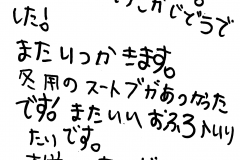 けしかじどうで
した!
またいつかきます。
冬用のスートブがあつかった
です! またいいおふろ入りり
たいです。